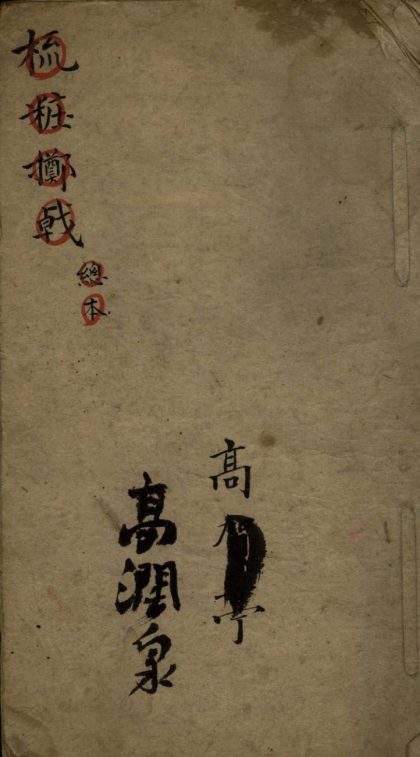 梳粧擲戟
總本
髙
亭
高潤泉